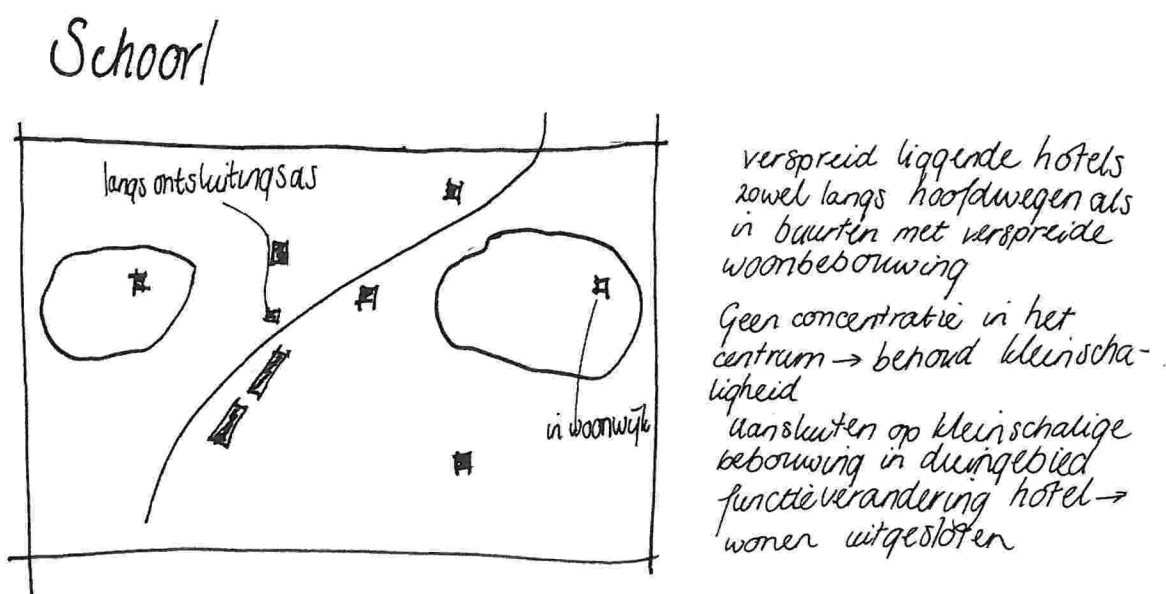 Schoorl
langs ontsluitingsas
in woonwijk
verspreid liggende hotels
zowel langs hoofdwegen als
in buurten met verspreide
woonbebouwing
Geen concentratie in het
centrum → behoud kleinscha-
ligheid
aansluiten op kleinschalige
bebouwing in duingebied
functieverandering hotel →
wonen uitgesloten